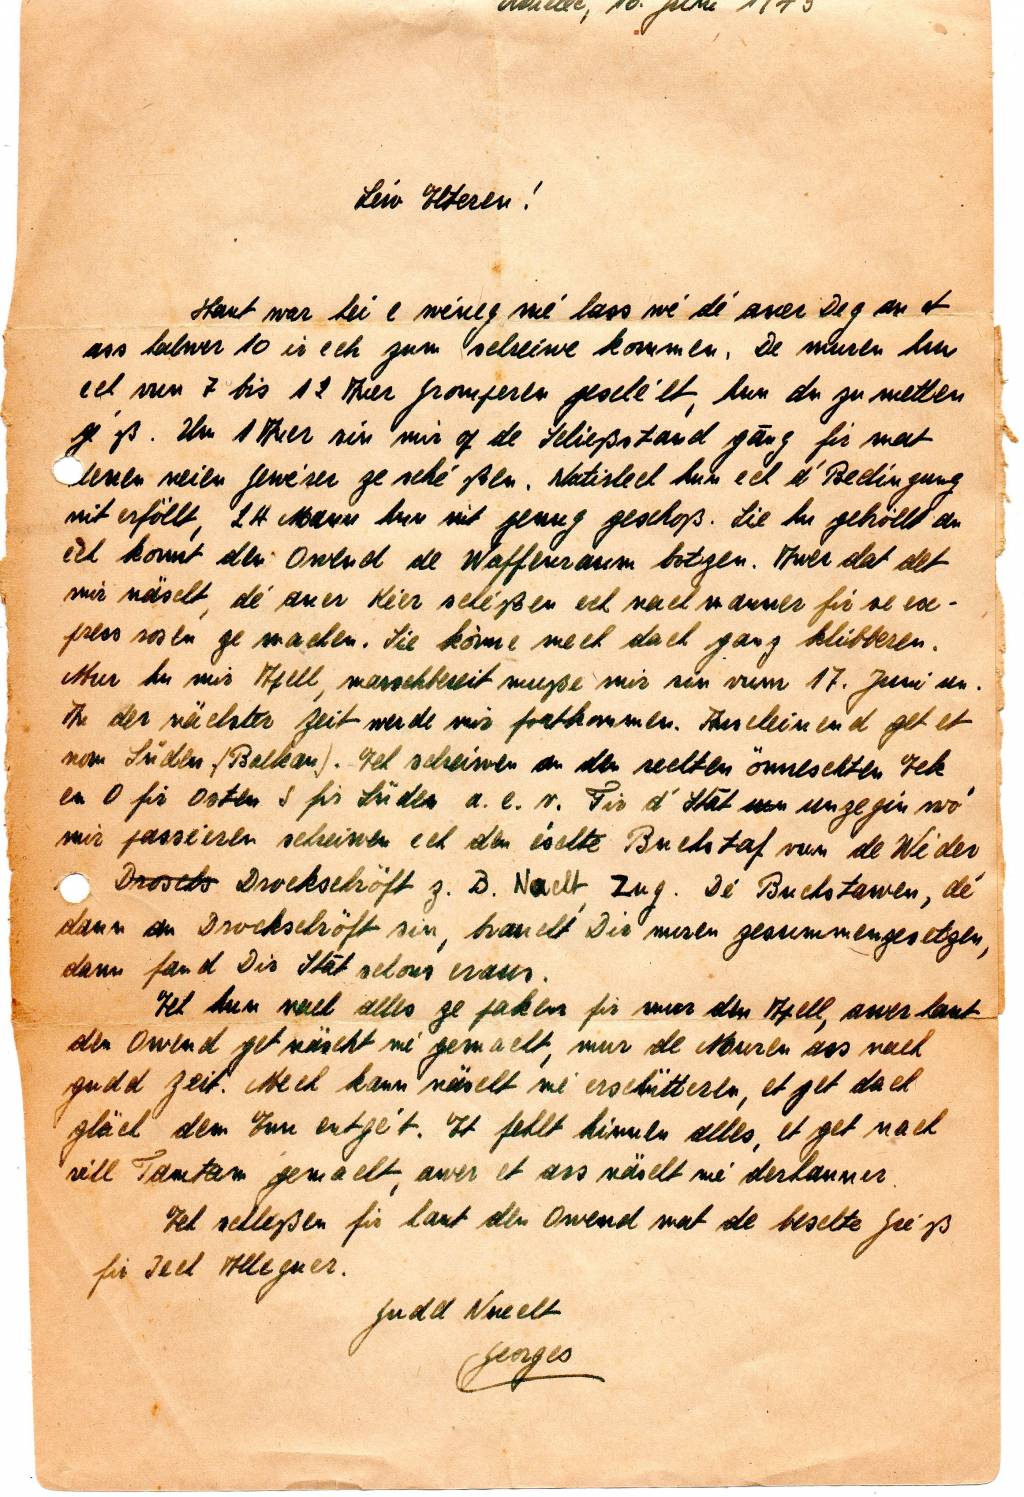 10. Juni 1943
Léiw Elteren!
Haut war hei e wéneg mé lass wé dé aner Deg an et
ass halwer 10 ir ech zum schreiwe kommen. De muren hun
ech vun 7 bis 12 Auer Gromperen geschéelt, hun du zu metten
géß. Um 1 Auer sin mir op de Schießstand gāng fir mat
denen neien Gewéser ze schéßen. Natirlech hun ech d' Bedingung
nit erföllt, 24 Mann hun nit genug geschoß. Sie hu gebröllt an
ech konnt den Owend de Waffenraum botzen. Awer dat det
mir näscht, dé aner Kéer schéßen ech nach manner fir se ex-
press rosen ze machen. Sie könne mech dach ganz klibberen.
Mur hu mir Apell, marschbereit muße mir sin vum 17. Juni un.
An der nächster Zeit werde mir fortkommen. Anscheinend get et
nom Süden (Balkan). Ech schreiwen an den rechten önneschten Eck
en O fir Osten S fir Süden a. e. v. Fir d' Stāt ungegin wó
mir passéieren schreiwen ech den éschte Buchstaf vum de Wieder
Drockschröft z. B. Nacht, Zug. Dé Buchstawen, dé
dann an Drockschröft sin, braucht Dir nuren zesummenzesetzen,
dann fand Dir Stāt schons eraus.
Ech hun nach alles ze paken fir mur den Apell, awer haut
den Owend get näscht mé gemacht, mur de Muren ass nach
gudd Zeit. Mech kann näscht mé erschütteren, et get dach
gläch dem Enn entgét. Et fehlt hinnen alles, et get nach
vill Tamtam gemacht, awer et ass näscht mé derhanner.
Ech schleßen fir haut den Owend mat de beschte Gréß
fir Iech Alleguer.
Gudd Nuecht
Georges